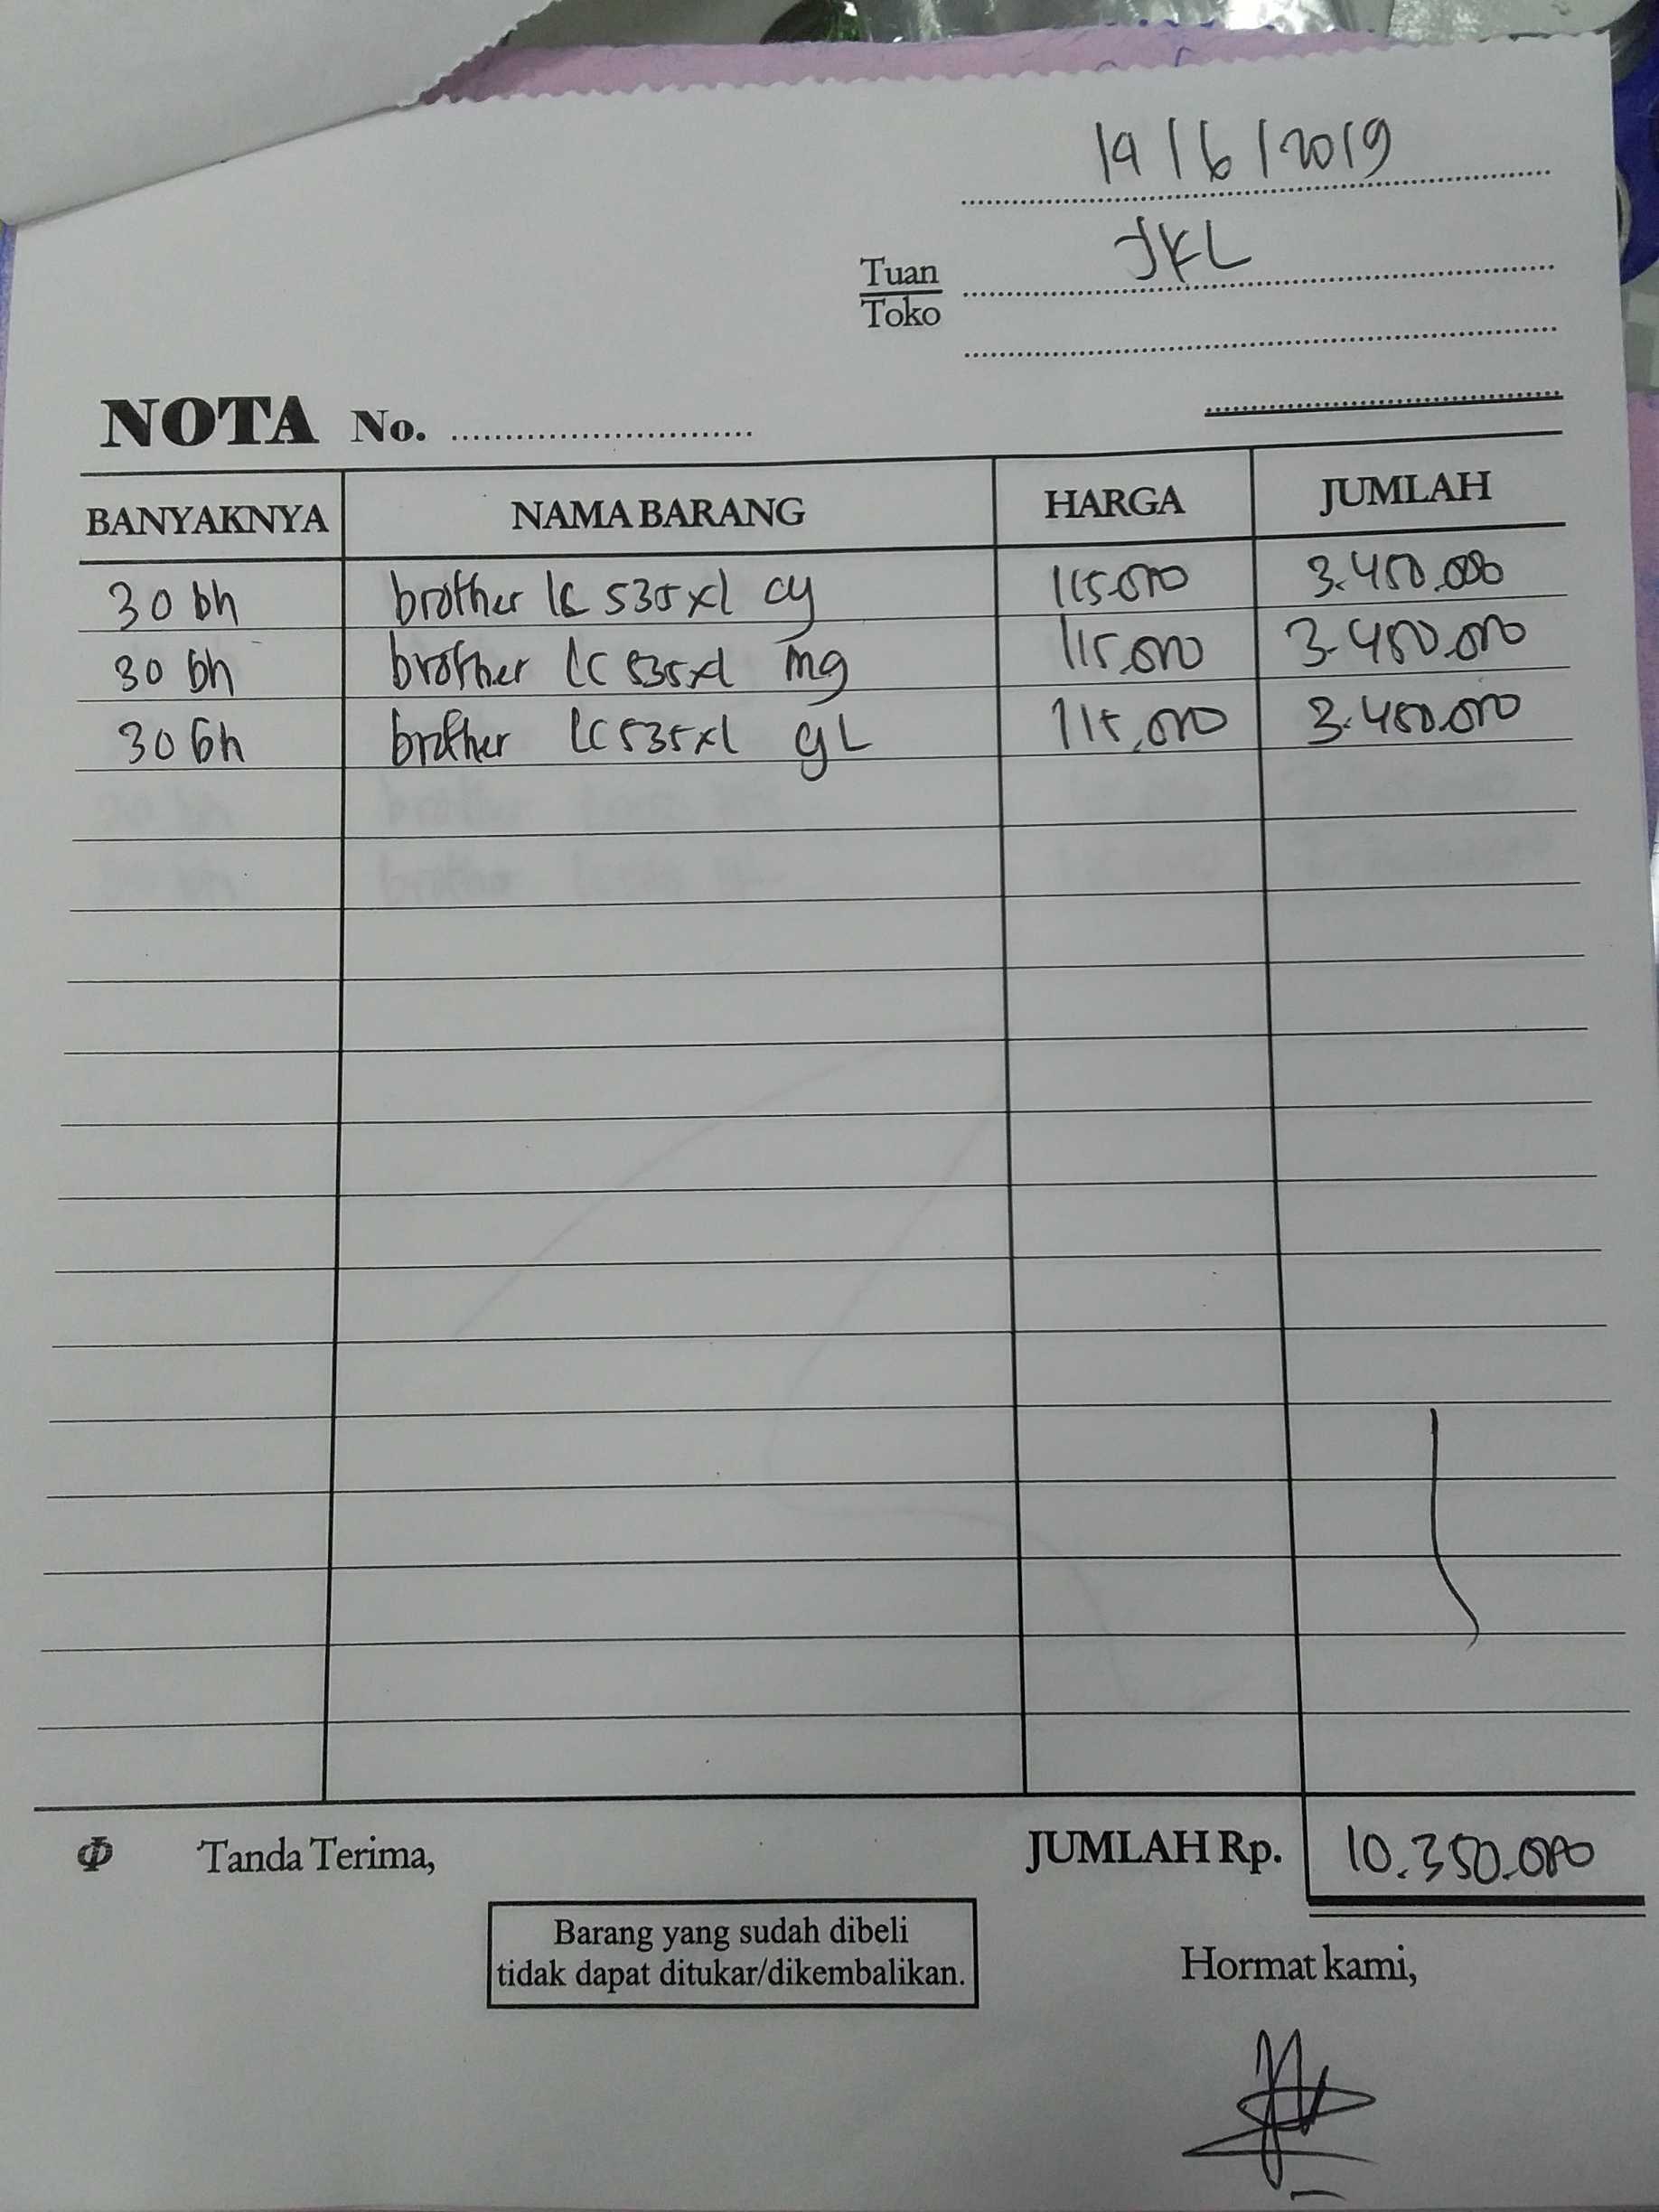 19/6/2019
Tuan JKL
Toko
NOTA No.
BANYAKNYA NAMA BARANG HARGA JUMLAH
30 bh brother lc 535xl cy 115.000 3.450.000
30 bh brother lc 535xl mg 115.000 3.450.000
30 bh brother lc 535xl gL 115.000 3.450.000
Tanda Terima, JUMLAH Rp. 10.350.000
Barang yang sudah dibeli
tidak dapat ditukar/dikembalikan.
Hormat kami,